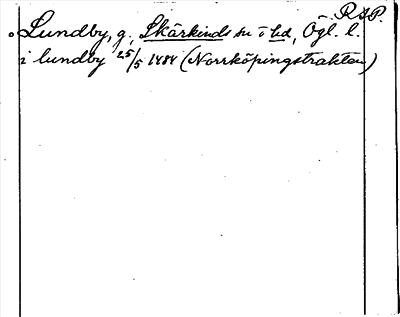 RAP.
Lundby, g., Skärkinds sn o hd, Ögl. l.
i lundby 25/5 1484 (Norrköpingstrakten)